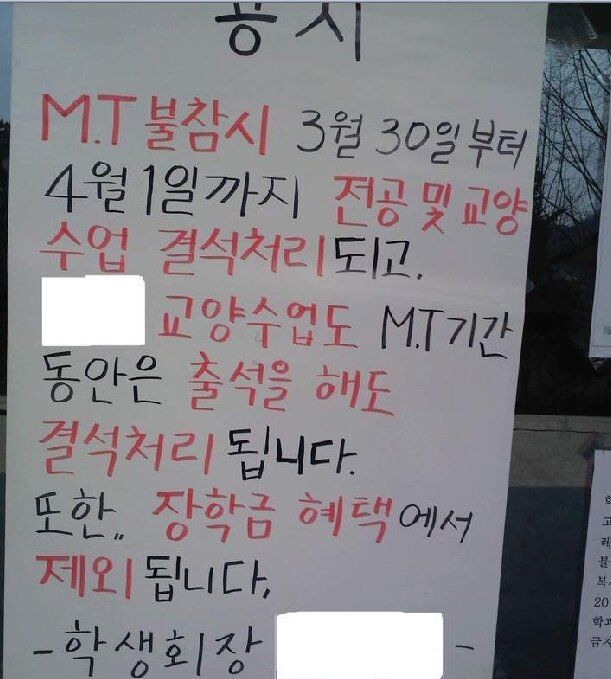 공지
M.T불참시 3월 30일부터
4월1일까지 전공 및 교양
수업 결석처리되고.
교양수업도 M.T기간
동안은 출석을 해도
결석처리됩니다.
또한.. 장학금 혜택에서
제외됩니다.
-학생회장 -